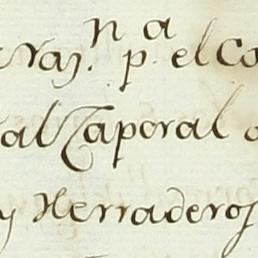 raz.n p.a el Co
al Caporal
y Herraderos